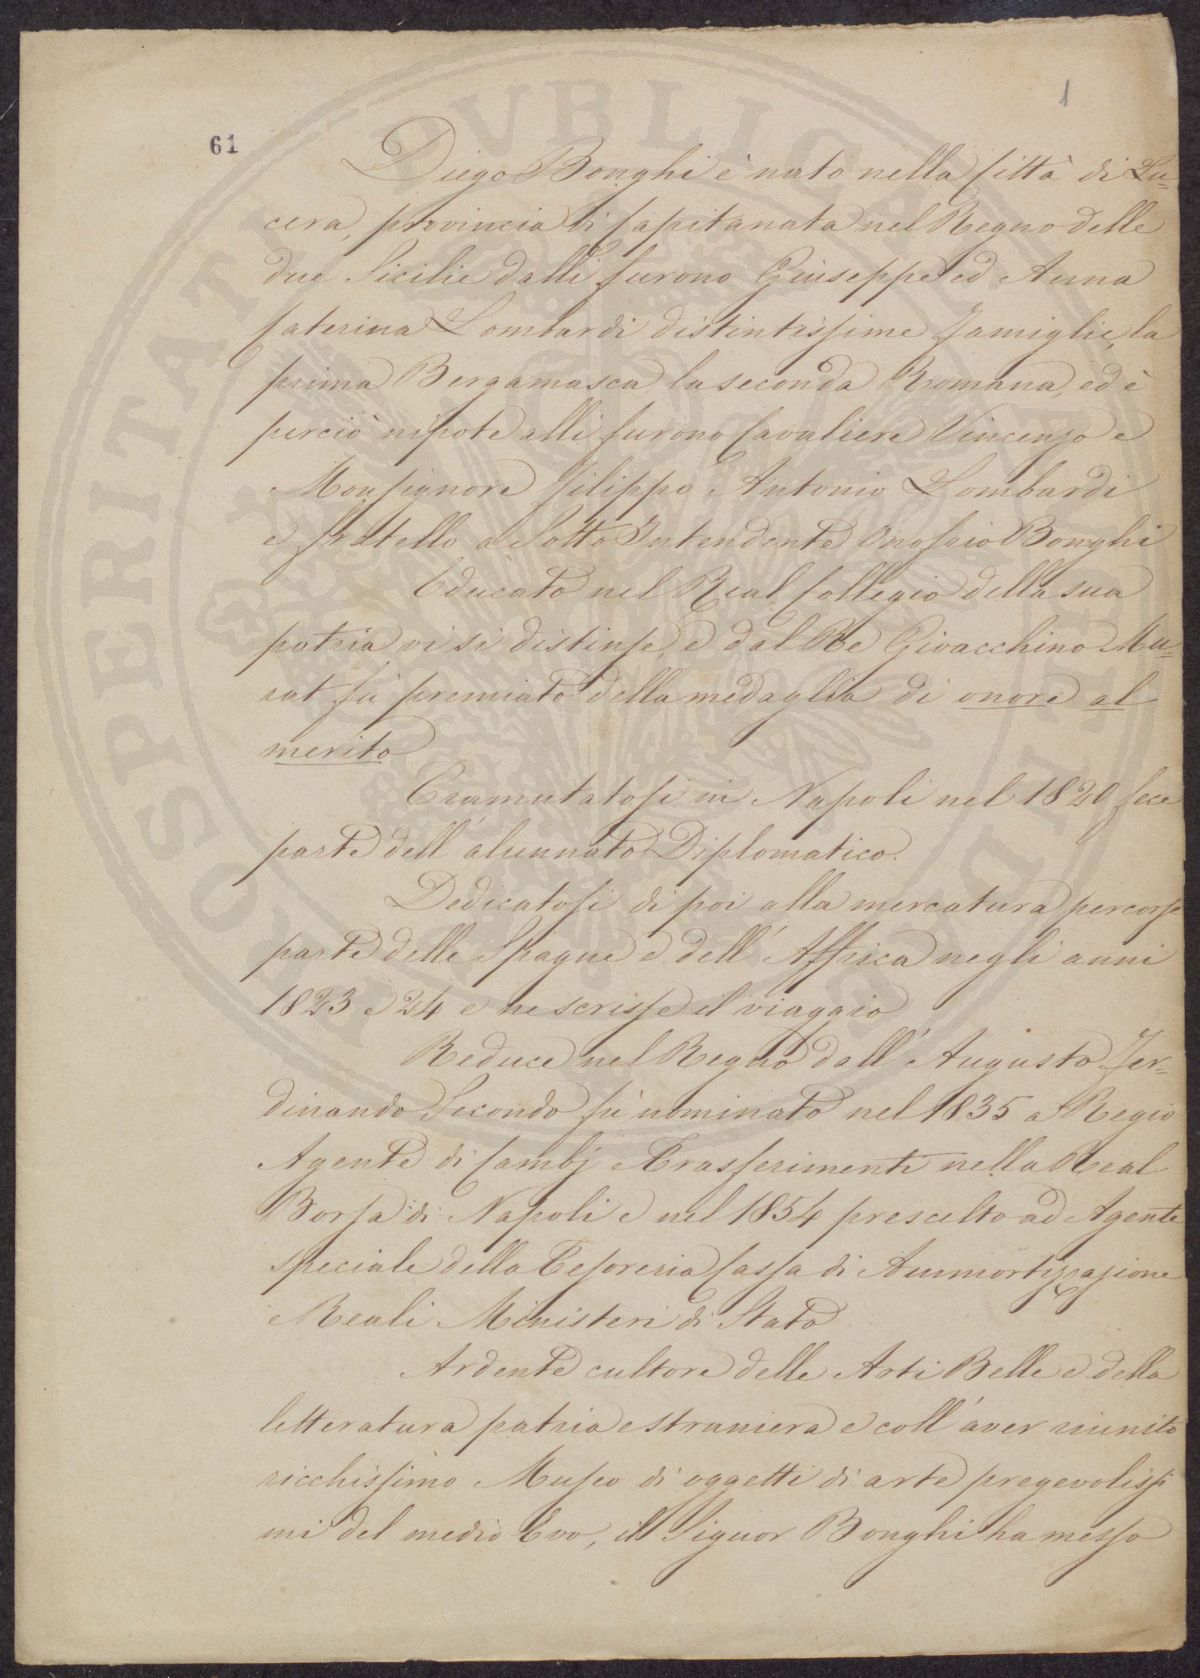 1
61
Diego Bonghi è nato nella Città di Lu=
cera, provincia di Capitanata nel Regno delle
due Sicilie dalli furono Giuseppe ed Anna
Caterina Lombardi distintissime famiglie, la
prima Bergamasca, la seconda Romana, ed è
perciò nipote alli furono Cavaliere Vincenzo e
Monsignore Filippo Antonio Lombardi
e fratello a Sotto Intendente Onofrio Bonghi
Educato nel Real Collegio della sua
patria vi si distinse, e dal Re Gioacchino Mu=
rat fù premiato della medaglia di onore al
merito
Tramutatosi in Napoli nel 1820 fece
parte dell'alunnato Diplomatico.
Dedicatosi di poi alla mercatura percorse
parte delle Spagne e dell'Affrica negli anni
1823 e 24 e ne scrisse il viaggio
Reduce nel Regno dall'Augusto Fer=
dinando Secondo fù nominato nel 1835 a Regio
Agente di Cambj e Trasferimenti nella Real
Borsa di Napoli e nel 1854 prescelto ad Agente
speciale della Tesoreria Cassa di Ammortizzazione
e Reali Ministeri di Stato
Ardente cultore delle Arti Belle e della
letteratura patria e straniera e coll'aver riunito
ricchissimo Museo di oggetti di arte pregevolissi
mi del medio Evo, il Signor Bonghi ha messo